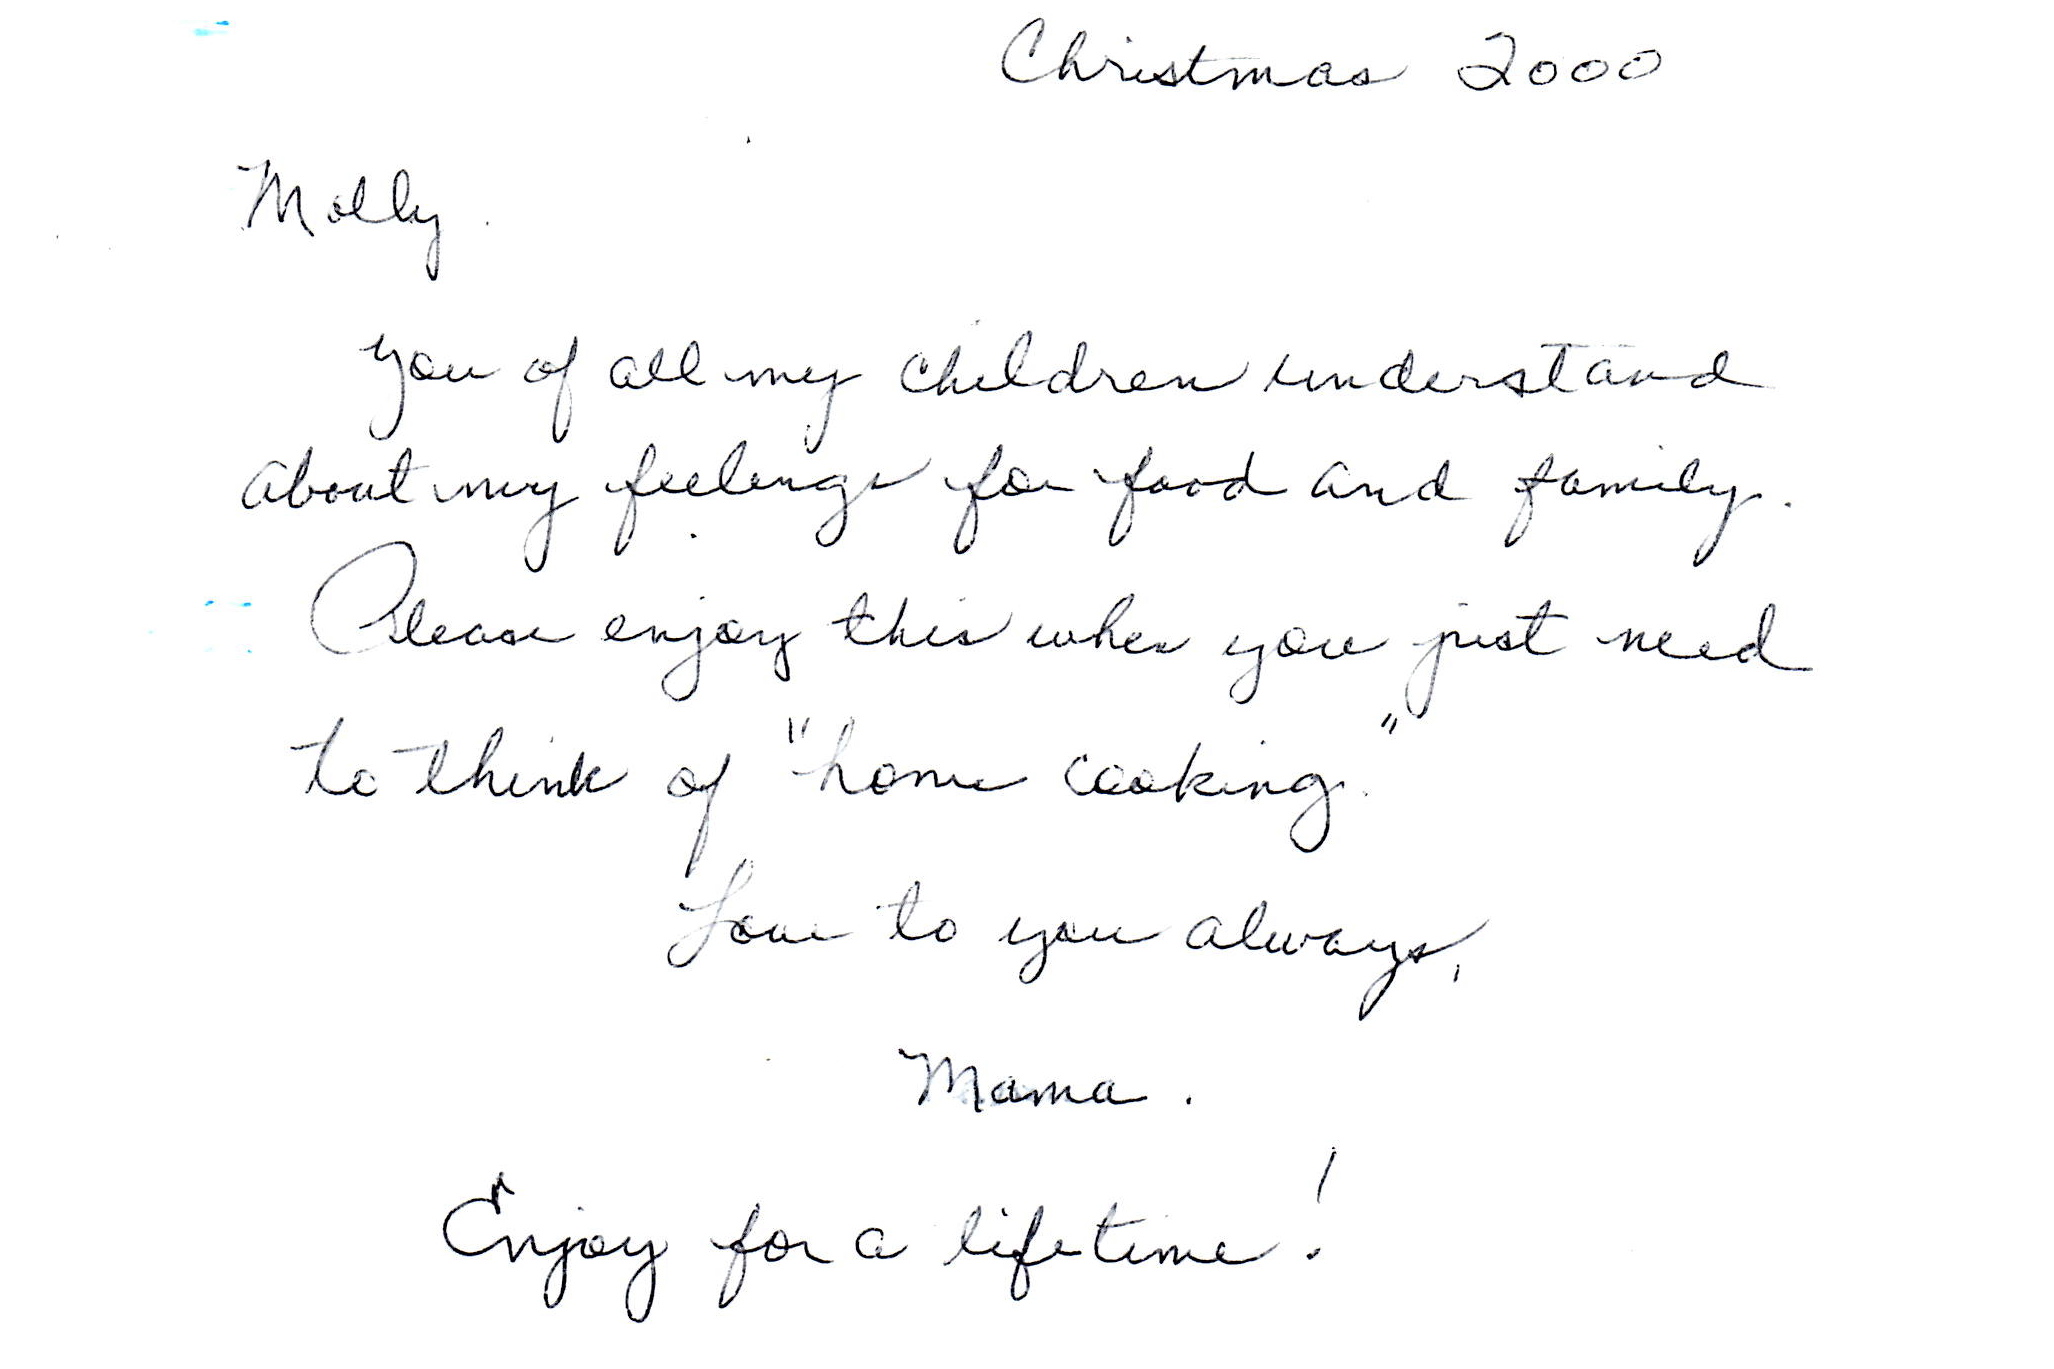 Christmas 2000
Molly
You of all my children understand
about my feelings for food and family.
Please enjoy this when you just need
to think of "home cooking."
Love to you always,
Mama.
Enjoy for a lifetime!